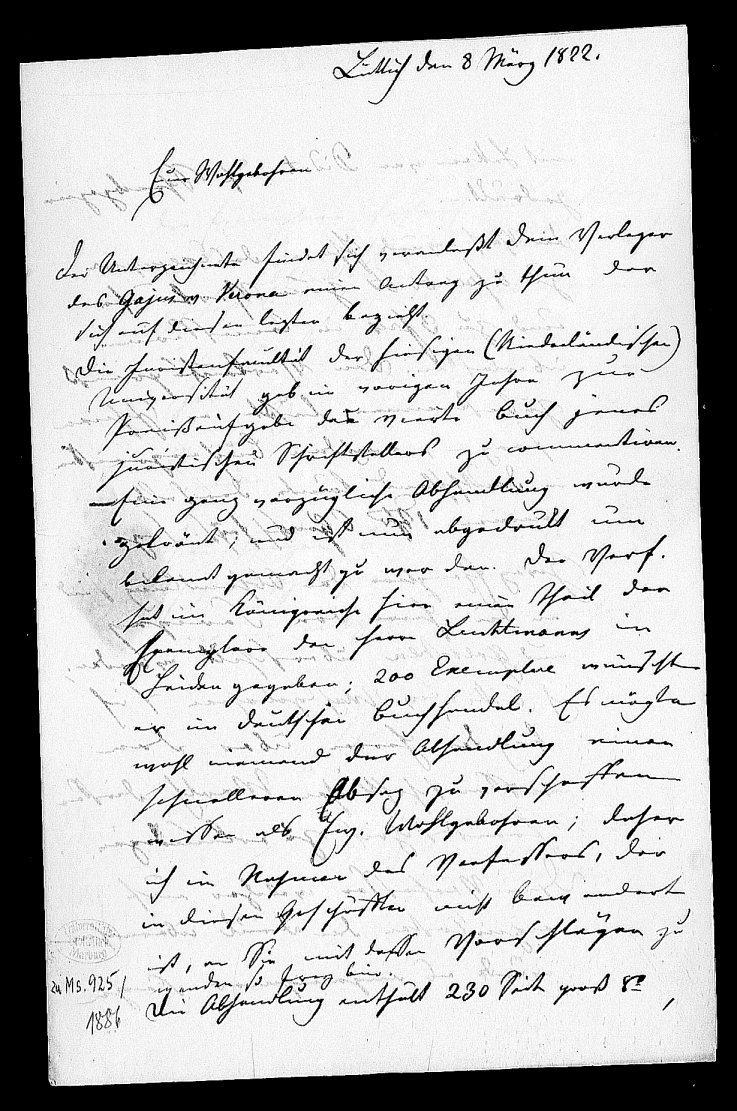 Lüttich den 8 März 1822.
Eur Wohlgebohren
Der Unterzeichnete findet sich veranlaßt dem Verleger
des Gajus v Verona einen Antrag zu thun der
sich auf diesen letzten bezieht.
Die Juristenfacultät der hiesigen (Niederländischen)
Universität gab im vorigen Jahre zur
Preisaufgabe das vierte Buch jenes
juristischen Schriftstellers zu commentiren.
Eine ganz vorzügliche Abhandlung wurde
gekrönt, und ist nun abgedruckt um
bekannt gemacht zu werden. Der Verf.
hat im Königreiche hier einen Theil der
Exemplare den Herrn Leuchtmanns in
Leiden gegeben; 200 Exemplare wünscht
er im deutschen Buchhandel. Es mögte
wohl niemand der Abhandlung einen
schnelleren Absaz zu verschaffen
wissen als Ew. Wohlgebohren; daher
ich im Nahmen des Verfassers, der
in diesen Geschäften nicht bewandert
ist, an Sie mit dessen Vorschlägen zu
wenden so frey bin.
Die Abhandlung enthält 230 Seit groß 8°,
zu Ms. 925/
1886